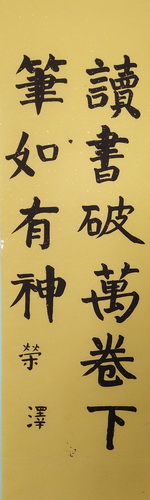 讀書破萬卷下
筆如有神
榮澤